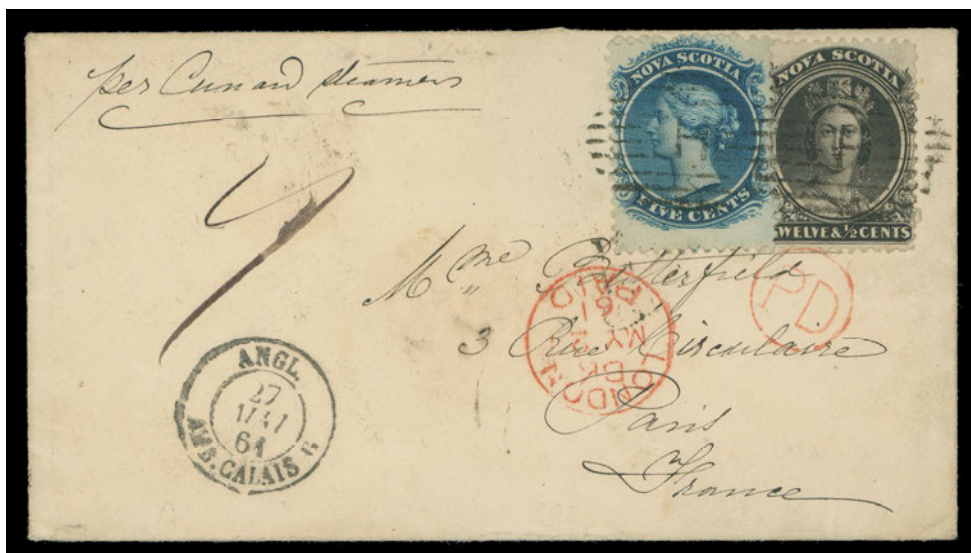 per Cunard steamers
NOVA SCOTIA
FIVE CENTS
NOVA SCOTIA
WELVE & ½ CENTS
Mme Butterfield
3 Rue Circulaire
Paris
France
PD
LONDON
MY
61
PAID
ANGL.
27
MAI
61
AMB. CALAIS